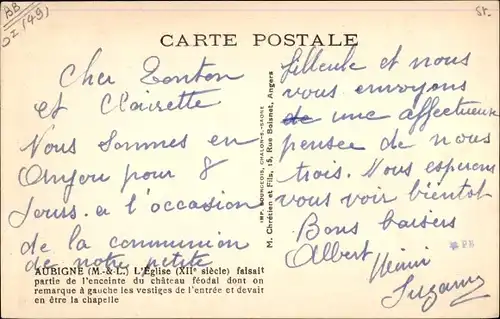 BB
(49)
St.
CARTE POSTALE
Cher Tonton
et Clairette
Nous sommes en
Anjou pour 8
jours. a l'occasion
de la communion
de notre petite
AUBIGNE (M.-&-L.) L'Eglise (XIIe siècle) faisait
partie de l'enceinte du château féodal dont on
remarque à gauche les vestiges de l'entrée et devait
en être la chapelle
IMP. BOURGEOIS, CHALON-S.-SAONE
M. Chrétien et Fils, 15, Rue Boisnet, Angers
filleule et nous
vous envoyons
de une affectueuse
pensee de nous
trois. Nous esperons
vous voir bientot
Bons baisers
Albert Mimi
Suzanne